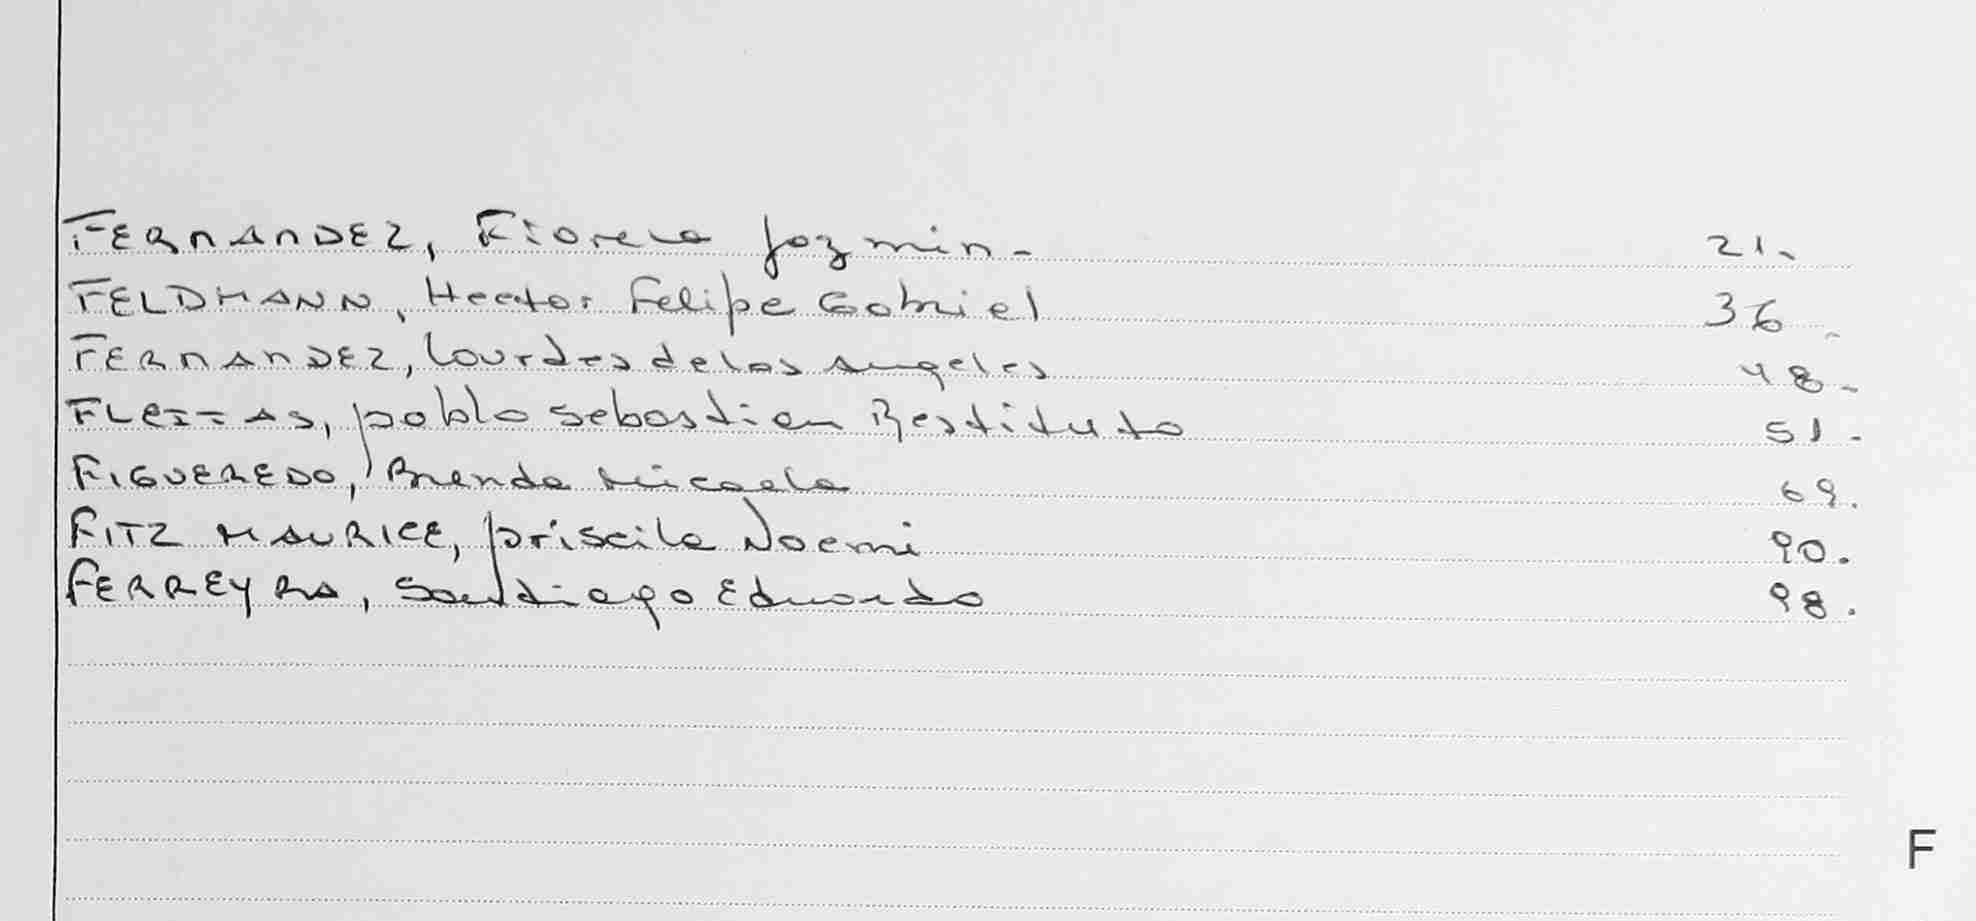 FERNANDEZ, Fiorela Jazmin- 21.
FELDMANN, Hector Felipe Gabriel 36.
FERNANDEZ, Lourdes de los Angeles 48-
FLEITAS, pablo Sebastian Restituto 51.
FIGUEREDO, Brenda Micaela 69.
FITZ MAURICE, priscila Noemi 90.
FERREYRA, Santiago Eduardo 98.
F